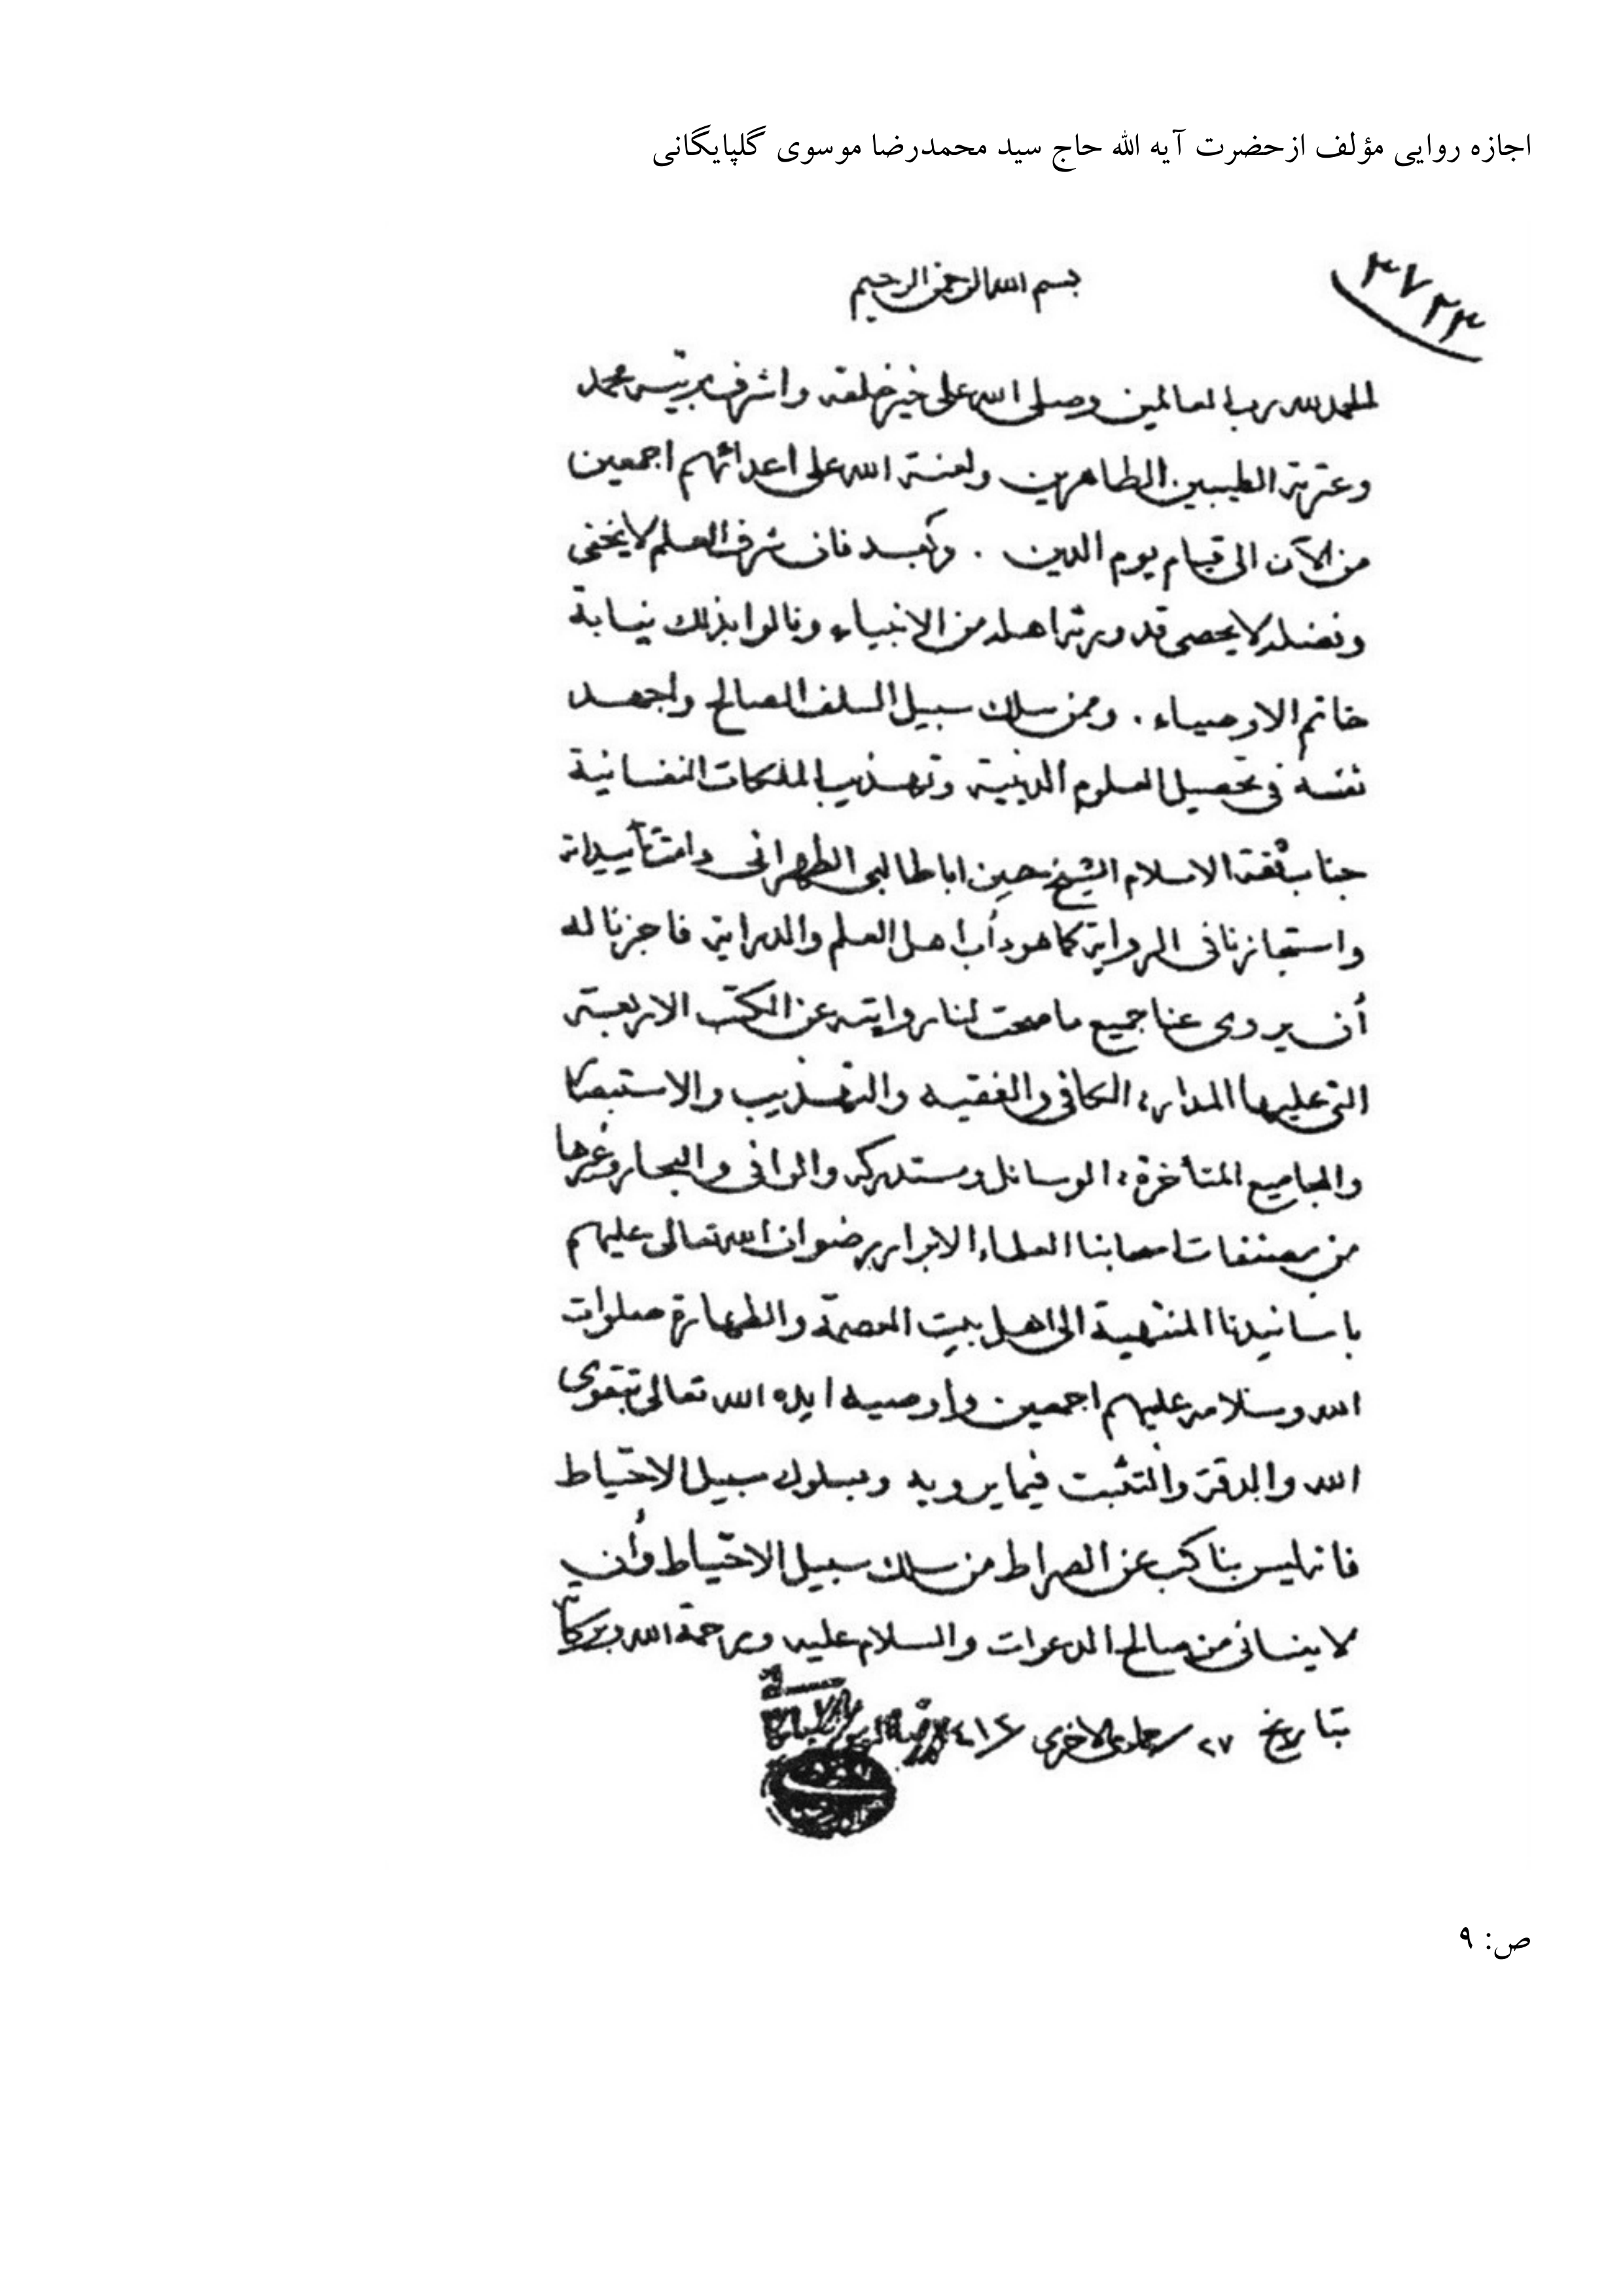 اجازه روایی مؤلف ازحضرت آیه الله حاج سید محمدرضا موسوی گلپایگانی
۳۷۲۳
بسم الله الرحمن الرحیم
الحمد لله رب العالمین وصلی الله علی خیر خلقه واشرف بریته محمد
وعترته الطیبین الطاهرین ولعنة الله علی اعدائهم اجمعین
من الآن الی قیام یوم الدین . وبعد فان شرف العلم لا یخفی
وفضله لا یحصی قد ورثه اهله من الانبیاء ونالوا بذلك نیابة
خاتم الاوصیاء . وممن سلك سبیل السلف الصالح واجهد
نفسه فی تحصیل العلوم الدینیة وتهذیب الملكات النفسانیة
جناب ثقة الاسلام الشیخ حسین اباطالبی الطهرانی دامت تأییداته
واستجازنا فی الروایة كما هو دأب اهل العلم والدرایة فاجزنا له
أن یروی عنا جمیع ما صحت لنا روایته عن الكتب الاربعة
التی علیها المدار، الكافی والفقیه والتهذیب والاستبصار
والمجامیع المتأخرة، الوسائل ومستدركه والوافی والبحار وغیرها
من مصنفات اصحابنا العلماء الابرار رضوان الله تعالی علیهم
باسانیدنا المنتهیة الی اهل بیت العصمة والطهارة صلوات
الله وسلامه علیهم اجمعین واوصیه ایده الله تعالی بتقوی
الله والدقة والتثبت فیما یرویه وبسلوك سبیل الاحتیاط
فانه لیس بناكب عن الصراط من سلك سبیل الاحتیاط وأن
لا ینسانی من صالح الدعوات والسلام علیه ورحمة الله وبركاته
بتاریخ ۲۷ جمادی الاخری ۱٤۱۲
ص: ۹